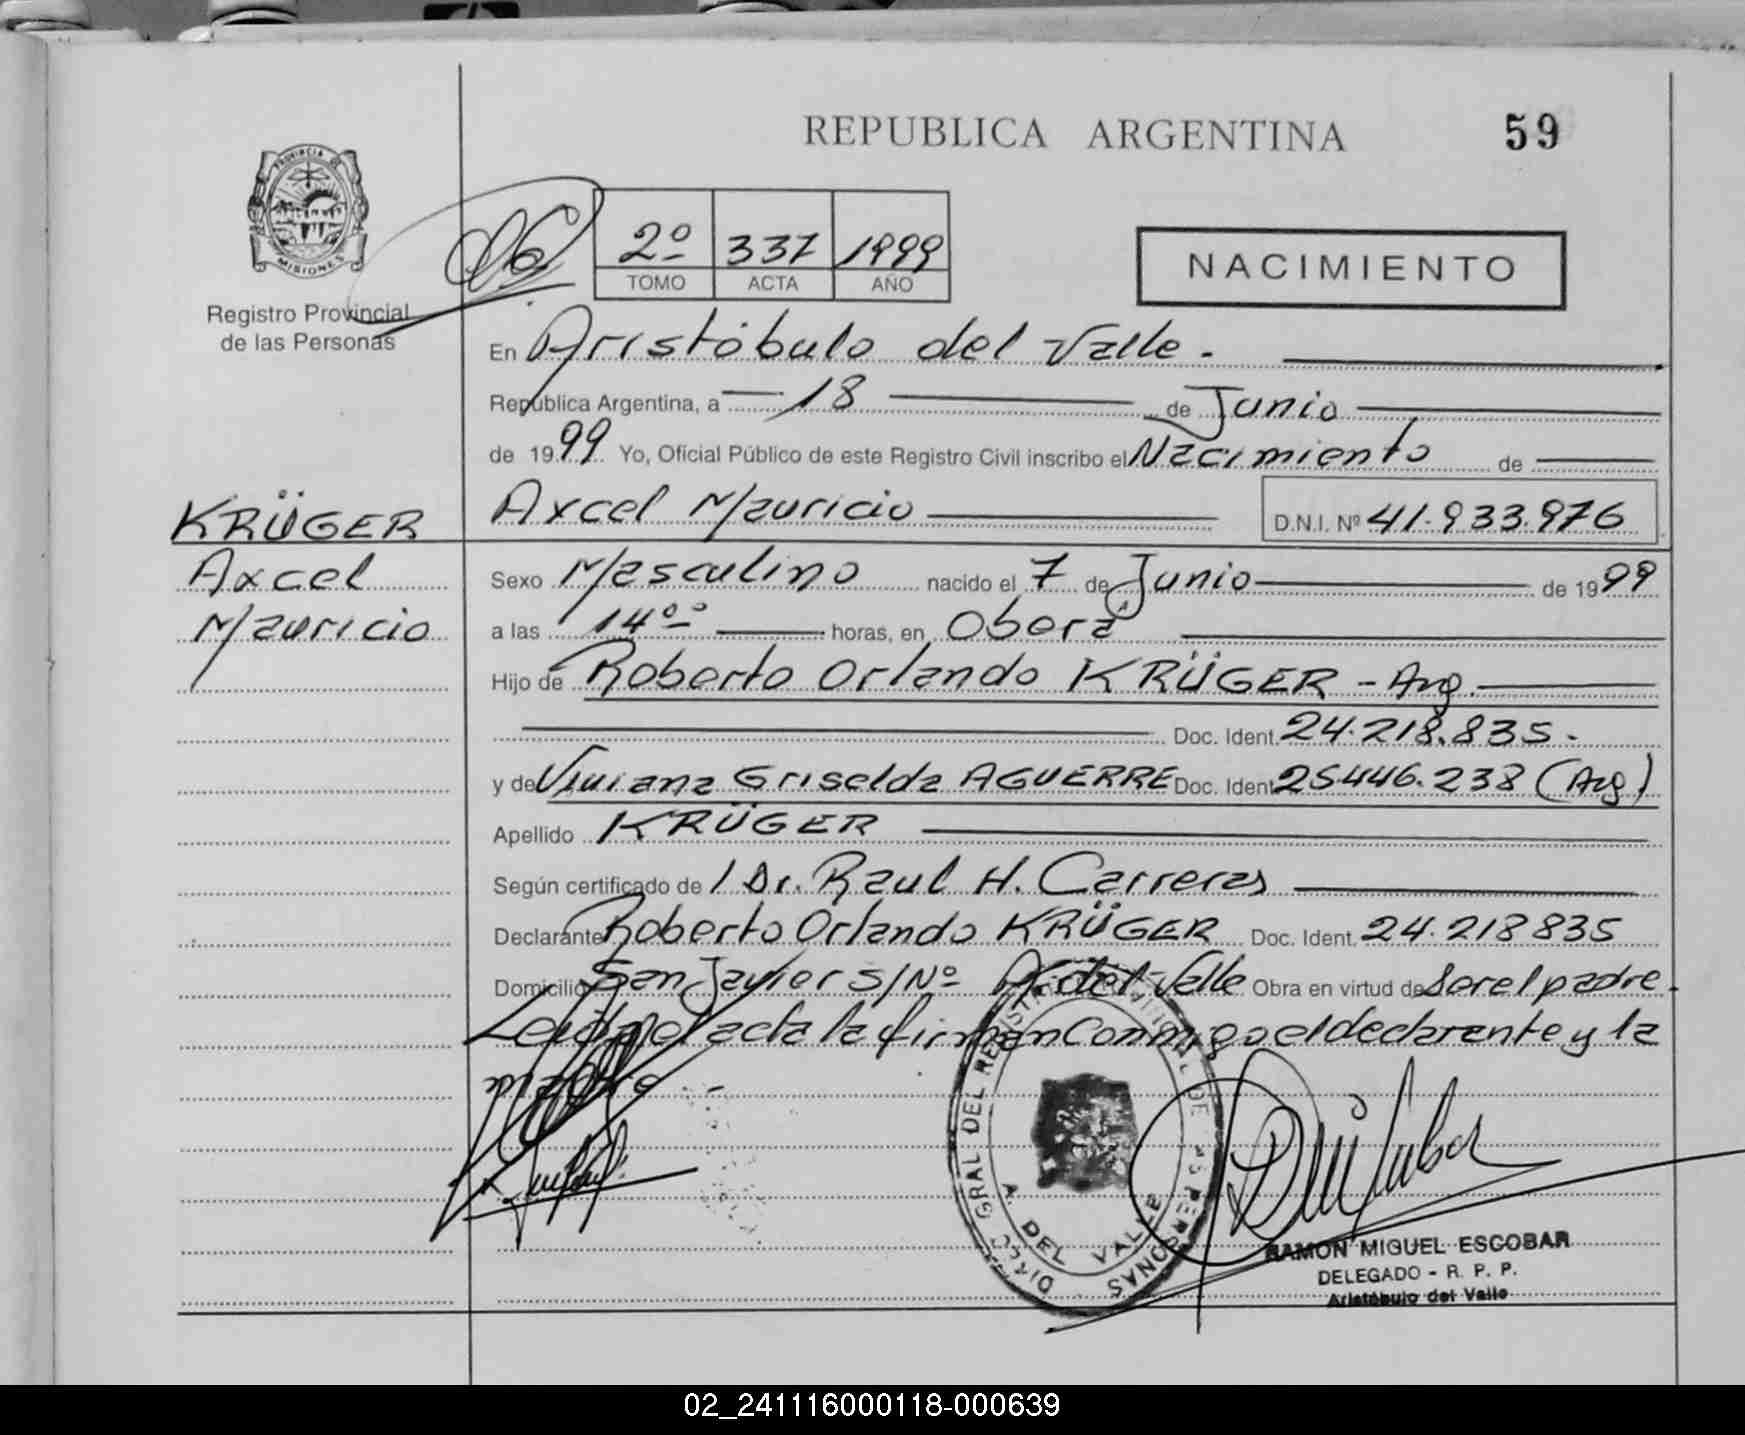 REPUBLICA ARGENTINA
59
PROVINCIA DE
MISIONES
Registro Provincial
de las Personas
2º 337 1999
TOMO ACTA AÑO
NACIMIENTO
En Aristóbulo del Valle.
República Argentina, a 18 de Junio
de 1999 Yo, Oficial Público de este Registro Civil inscribo el Nacimiento de
KRÜGER
Axcel
Mauricio
Axcel Mauricio D.N.I. Nº 41.933.976
Sexo Masculino nacido el 7 de Junio de 1999
a las 14ºº horas, en Oberá
Hijo de Roberto Orlando KRÜGER - Arg.
Doc. Ident. 24.218.835.
y de Viviana Griselda AGUERRE Doc. Ident. 25446.238 (Arg)
Apellido KRÜGER
Según certificado de / Dr. Raul H. Carreras
Declarante Roberto Orlando KRÜGER Doc. Ident. 24.218835
Domicilio San Javier S/Nº A. del Valle Obra en virtud de Ser el padre.
Leida el acta la firman Conmigo el declarante y la
madre.-
DIREC. GRAL. DEL REGISTRO PROVINCIAL DE LAS PERSONAS
A. DEL VALLE
RAMON MIGUEL ESCOBAR
DELEGADO - R. P. P.
Aristóbulo del Valle
02_241116000118-000639